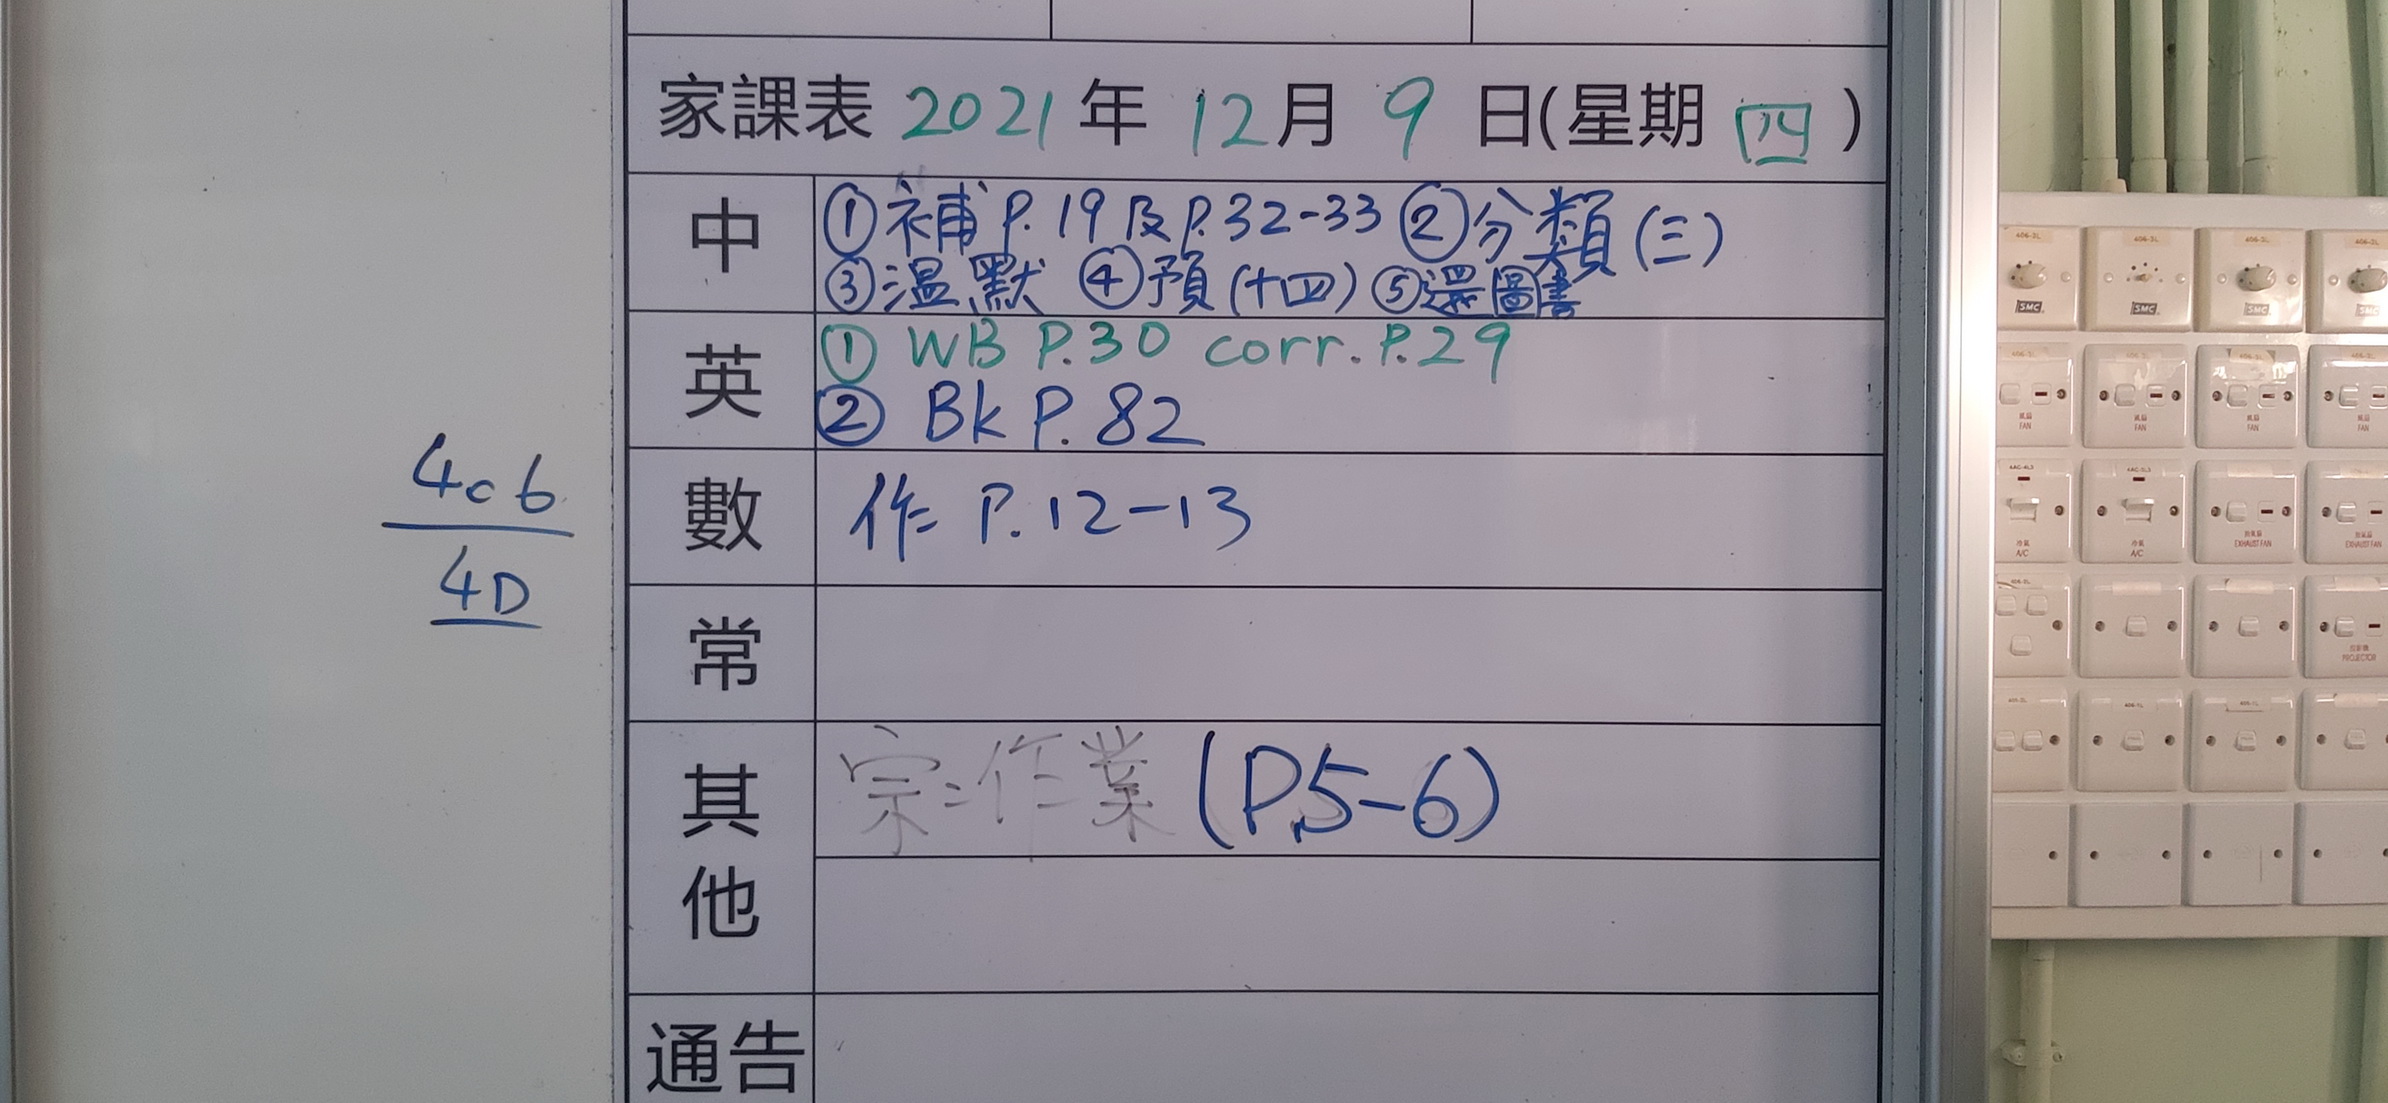 家課表 2021 年 12 月 9 日(星期 四 )
中
① 補 P. 19 及 P. 32-33 ② 分類 (三)
③ 溫默 ④ 預 (十四) ⑤ 還圖書
英
① WB P.30 corr. P.29
② Bk P. 82
數
作 P. 12-13
常
其他
宗:作業 (P.5-6)
通告
406
4D
SMC
SMC
SMC
SMC
風扇
FAN
風扇
FAN
風扇
FAN
風扇
FAN
冷氣
A/C
冷氣
A/C
抽氣扇
EXHAUST FAN
抽氣扇
EXHAUST FAN
投影機
PROJECTOR